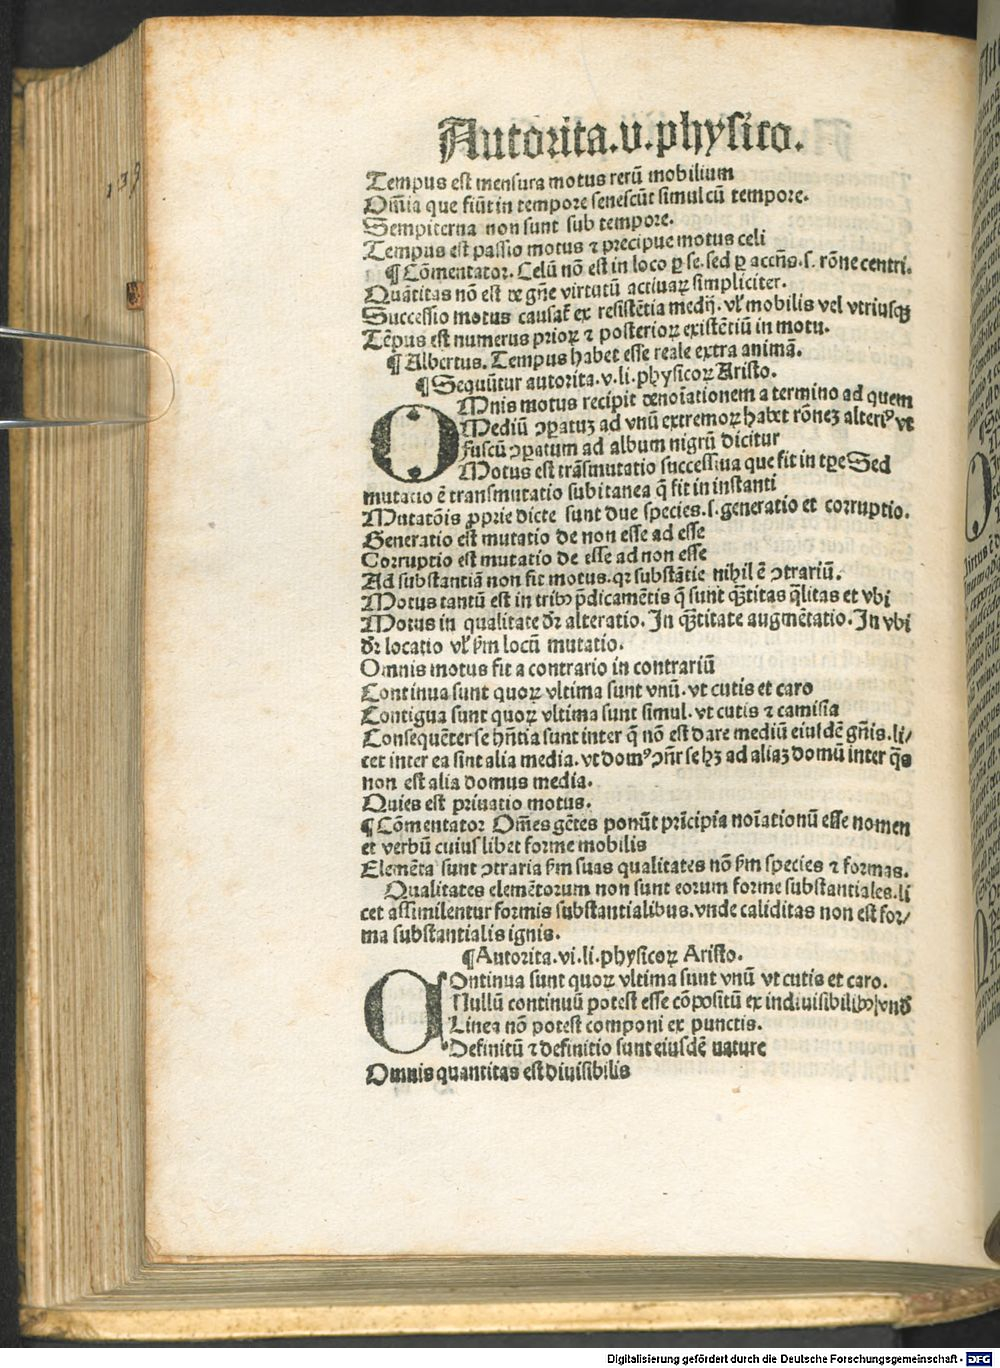 Autorita.v.physico.
Tempus est mensura motus rerū mobilium
Om̄ia que fiūt in tempore senescūt simul cū tempore.
Sempiterna non sunt sub tempore.
Tempus est passio motus ⁊ precipue motus celi
¶ Cōmentator. Celū nō est in loco ꝑ se. sed ꝑ accñs. s. rōne centri.
Quātitas nō est de gn̄e virtutū actiuaꝝ simpliciter.
Successio motus causat̄ ex resistētia medij. vl̓ mobilis vel vtriusqꝫ
Tēpus est numerus prioꝝ ⁊ posterioꝝ existētiū in motu.
¶ Albertus. Tempus habet esse reale extra animā.
¶ Sequūtur autorita.v.li.physicoꝝ Aristo.
OMnis motus recipit denoīationem a termino ad quem
Mediū ↄꝑatuꝫ ad vnū extremoꝝ habet rōneꝫ alteriꝰ vt
fuscū ↄꝑatum ad album nigrū dicitur
Motus est trāsmutatio successiua que fit in tꝑe Sed
mutatio ē transmutatio subitanea q̄ fit in instanti
Mutatōis ꝓprie dicte sunt due species. s. generatio et corruptio.
Generatio est mutatio de non esse ad esse
Corruptio est mutatio de esse ad non esse
Ad substantiā non fit motus. qꝛ substātie nihil ē ↄtrariū.
Motus tantū est in tribꝰ p̄dicamētis q̄ sunt q̄titas q̄litas et vbi
Motus in qualitate dꝛ̄ alteratio. In q̄titate augmētatio. In vbi
dꝛ̄ locatio vl̓ ẜm locū mutatio.
Omnis motus fit a contrario in contrariū
Continua sunt quoꝝ vltima sunt vnū. vt cutis et caro
Contigua sunt quoꝝ vltima sunt simul. vt cutis ⁊ camisia
Consequēter se hn̄tia sunt inter q̄ nō est dare mediū eiusdē gn̄is. li/
cet inter ea sint alia media. vt domꝰ ↄn̄r se hꝫ ad aliaꝫ domū inter q̄s
non est alia domus media.
Quies est priuatio motus.
¶ Cōmentator Om̄es gētes ponūt prīcipia noīationū esse nomen
et verbū cuiuslibet forme mobilis
Elemēta sunt ↄtraria ẜm suas qualitates nō ẜm species ⁊ formas.
Qualitates elemētorum non sunt eorum forme substantiales. li
cet assimilentur formis substantialibus. vnde caliditas non est for/
ma substantialis ignis.
¶ Autorita.vi.li.physicoꝝ Aristo.
COntinua sunt quoꝝ vltima sunt vnū vt cutis et caro.
Nullū continuū potest esse cōpositū ex indiuisibilibꝰ vnd̄
Linea nō potest componi ex punctis.
Definitū ⁊ definitio sunt eiusdē nature
Omnis quantitas est diuisibilis
Digitalisierung gefördert durch die Deutsche Forschungsgemeinschaft - DFG